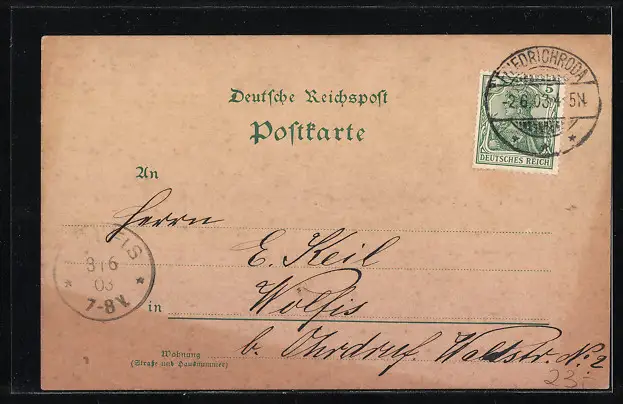 Deutsche Reichspost
Postkarte
FRIEDRICHRODA
-2.6.03.4-5N.
5
DEUTSCHES REICH
An
Herrn
E. Keil
3 6
03
7-8V.
in Wölfis
b. Ohrdruf. Waldstr. No. 2
Wohnung
(Straße und Hausnummer)
23.-